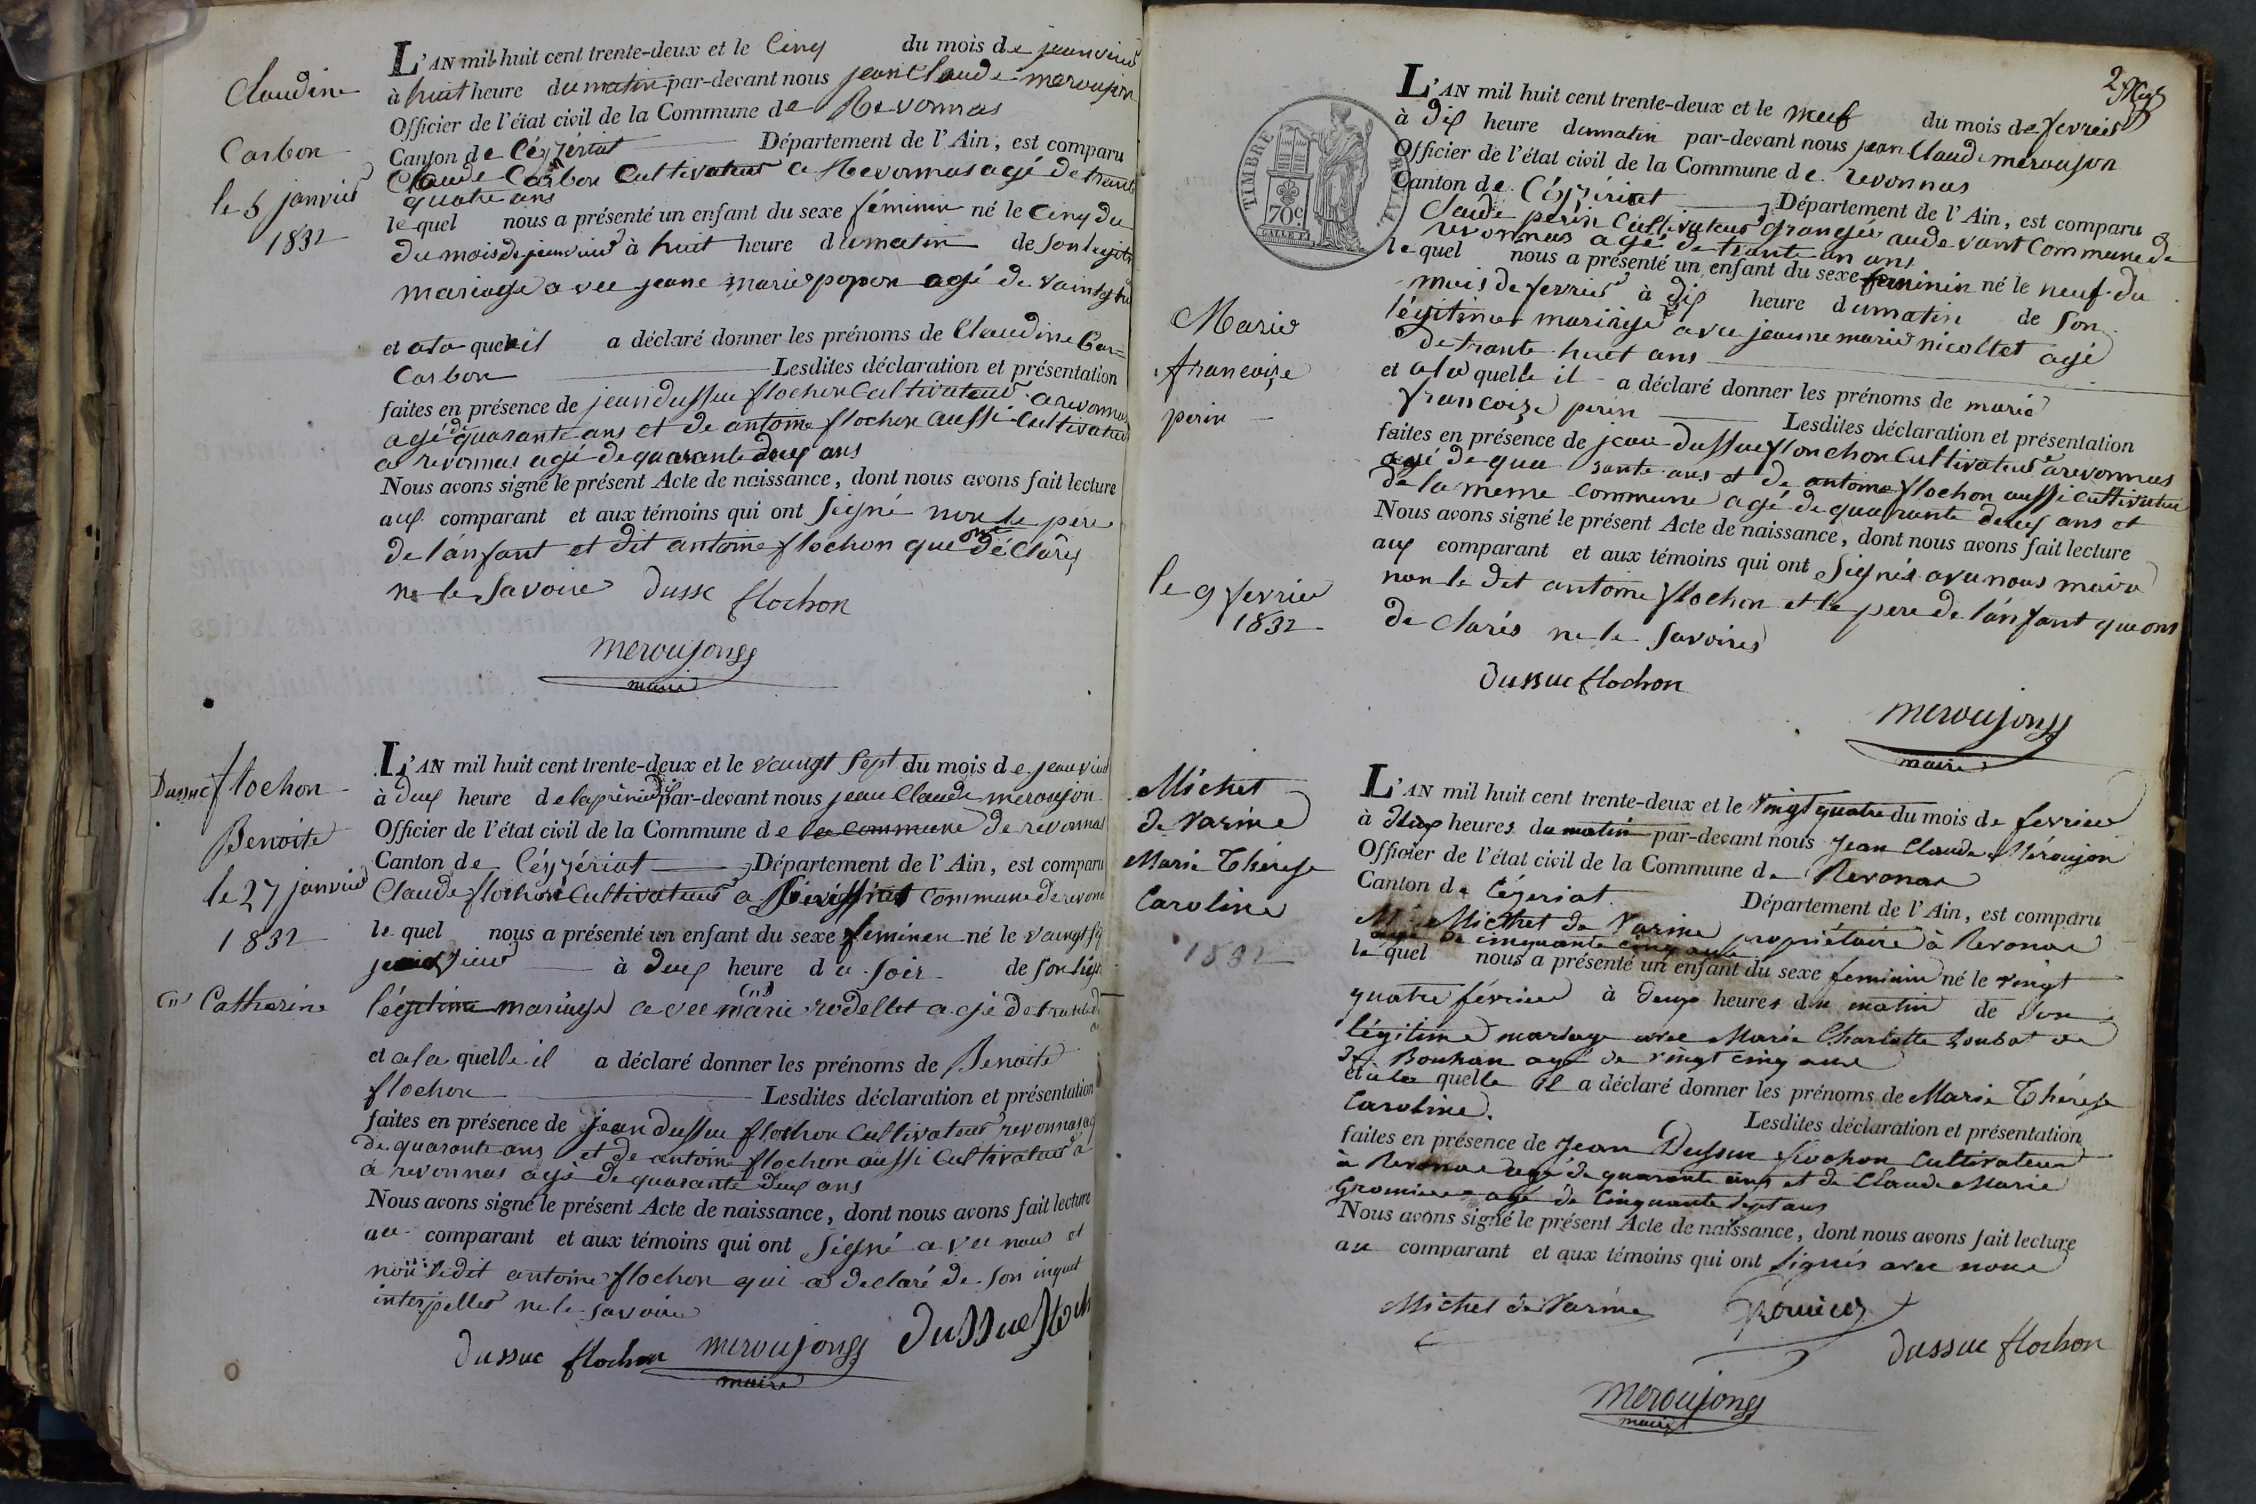 Claudine
Carbon
le 5 janvier
1832
L'AN mil huit cent trente-deux et le Cinq du mois de janvier
à huit heure du matin par-devant nous jean Claude meroujon
Officier de l'état civil de la Commune de Revonnas
Canton de Ceyzériat Département de l'Ain, est comparu
Claude Carbon Cultivateur a Revonnas agé de trante
quatre ans
le quel nous a présenté un enfant du sexe féminin né le Cinq du
du mois de janvier à huit heure du matin de son legitime
mariage avec jeane marie popon agé de vaingt
et ala quelle il a déclaré donner les prénoms de Claudine Car=
Carbon Lesdites déclaration et présentation
faites en présence de jean dussuc flochon Cultivateur a revonnas
agé de quarante ans et de antoine flochon aussi Cultivateur
a revonnas agé de quarante deux ans
Nous avons signé le présent Acte de naissance, dont nous avons fait lecture
aux comparant et aux témoins qui ont signé non le père
de l'anfant et dit antoine flochon que ont déclarés
ne le savoire dussc flochon
meroujong
maire
Dussuc flochon
Benoite
le 27 janvier
1832
Catherine
L'AN mil huit cent trente-deux et le vaingt sept du mois de janvier
à deux heure de la prèmidi par-devant nous jean Claude meroujon
Officier de l'état civil de la Commune de la commune de revonnas
Canton de Céyzériat Département de l'Ain, est comparu
Claude flochon Cultivateur a commune de revonn
le quel nous a présenté un enfant du sexe feminen né le vaingt
janvier à deux heure du soir de son
légitime mariage avec marie rodellet agé de trante
et ala quelle il a déclaré donner les prénoms de Benoite
flochon Lesdites déclaration et présentation
faites en présence de jean dussuc flochon Cultivateur revonnas ag
de quarante ans et de antoine flochon aussi Cultivateur a
a revonnas agé de quarante deux ans
Nous avons signé le présent Acte de naissance, dont nous avons fait lecture
au comparant et aux témoins qui ont signé avec nous et
non ledit antoine flochon qui a declaré de son
interpeller ne le savoire
dussuc flochon meroujong dussuc floch
maire
2
TIMBRE ROYAL
70c
L'AN mil huit cent trente-deux et le neuf du mois de fevrier
à dix heure du matin par-devant nous jean Claude meroujon
Officier de l'état civil de la Commune de revonnas
Canton de Céyzériat Département de l'Ain, est comparu
Claude perin Cultivateur Grangér au devant Commune de
revonnas agé de trante un ans
le quel nous a présenté un enfant du sexe feminin né le neuf du
mois de fevrier à dix heure du matin de son
légitime mariage avec jeanne marie nicollet agé
de trante huit ans
et ala quelle il a déclaré donner les prénoms de marie
françoise perin Lesdites déclaration et présentation
faites en présence de jean dussuc flonchon Cultivateur a revonnas
agé de qua rante ans et de antoine flochon aussi cultivateur
de la même commune agé de quarante deux ans et
Nous avons signé le présent Acte de naissance, dont nous avons fait lecture
aux comparant et aux témoins qui ont signés avec nous maire
non le dit antoine flochon et le pere de l'anfant que ont
de clarés ne le savoires
dussuc flochon
meroujong
maire
Marie
francoise
perin
le 9 fevrier
1832
Michet
de Varine
Marie Thérèse
Caroline
1832
L'AN mil huit cent trente-deux et le vingt quatre du mois de fevrier
à deux heures du matin par-devant nous Jean Claude Méroujon
Officier de l'état civil de la Commune de Revonas
Canton de Cézeriat Département de l'Ain, est comparu
Michet de Varine propriétaire à Revonas
agé de cinquante cinq ans
le quel nous a présenté un enfant du sexe feminin né le vingt
quatre février à deux heures du matin de son
légitime mariage avec Marie Charlotte Loubat de
Bouhan agé de vingt cinq ans
et à la quelle il a déclaré donner les prénoms de Marie Thérèse
Caroline. Lesdites déclaration et présentation
faites en présence de Jean Dussuc flochon Cultivateur
à Revonas agé de quarante ans et de Claude Marie
agé de Cinquante sept ans
Nous avons signé le présent Acte de naissance, dont nous avons fait lecture
au comparant et aux témoins qui ont signés avec nous
Michet de Varine
dussuc flochon
meroujong
maire